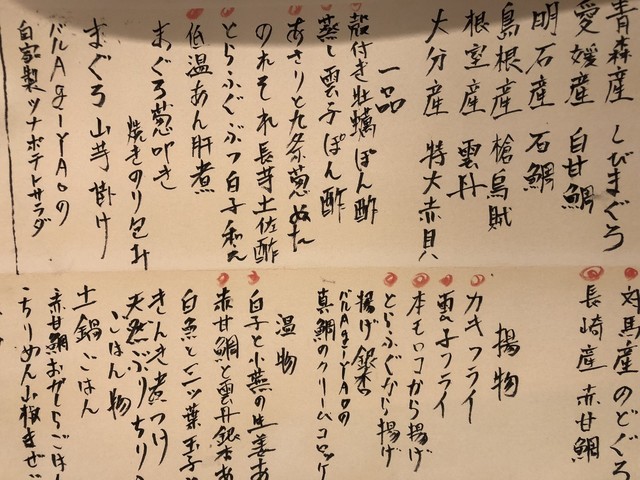 青森産 しびまぐろ
愛媛産 白甘鯛
明石産 石鯛
島根産 槍烏賊
根室産 雲丹
大分産 特大赤貝
一品
殻付き牡蠣ぽん酢
蒸し雲子ぽん酢
あさりと九条葱ぬた
のれそれ長芋土佐酢
とらふぐぶつ白子和え
低温あん肝煮
まぐろ葱叩き
焼きのり包み
まぐろ山芋掛け
バルAjiYAOの
自家製ツナポテトサラダ
対馬産 のどぐろ
長崎産 赤甘鯛
揚物
カキフライ
雲子フライ
本モロコから揚げ
とらふぐから揚げ
揚げ銀杏
バルAjiYAOの
真鯛のクリームコロッケ
温物
白子と小蕪の生姜あ
赤甘鯛と雲丹銀杏あ
白魚と三ツ葉玉子
きんき煮つけ
天然ぶりちり
ごはん物
土鍋ごはん
赤甘鯛おかしらごはん
ちりめん山椒まぜご